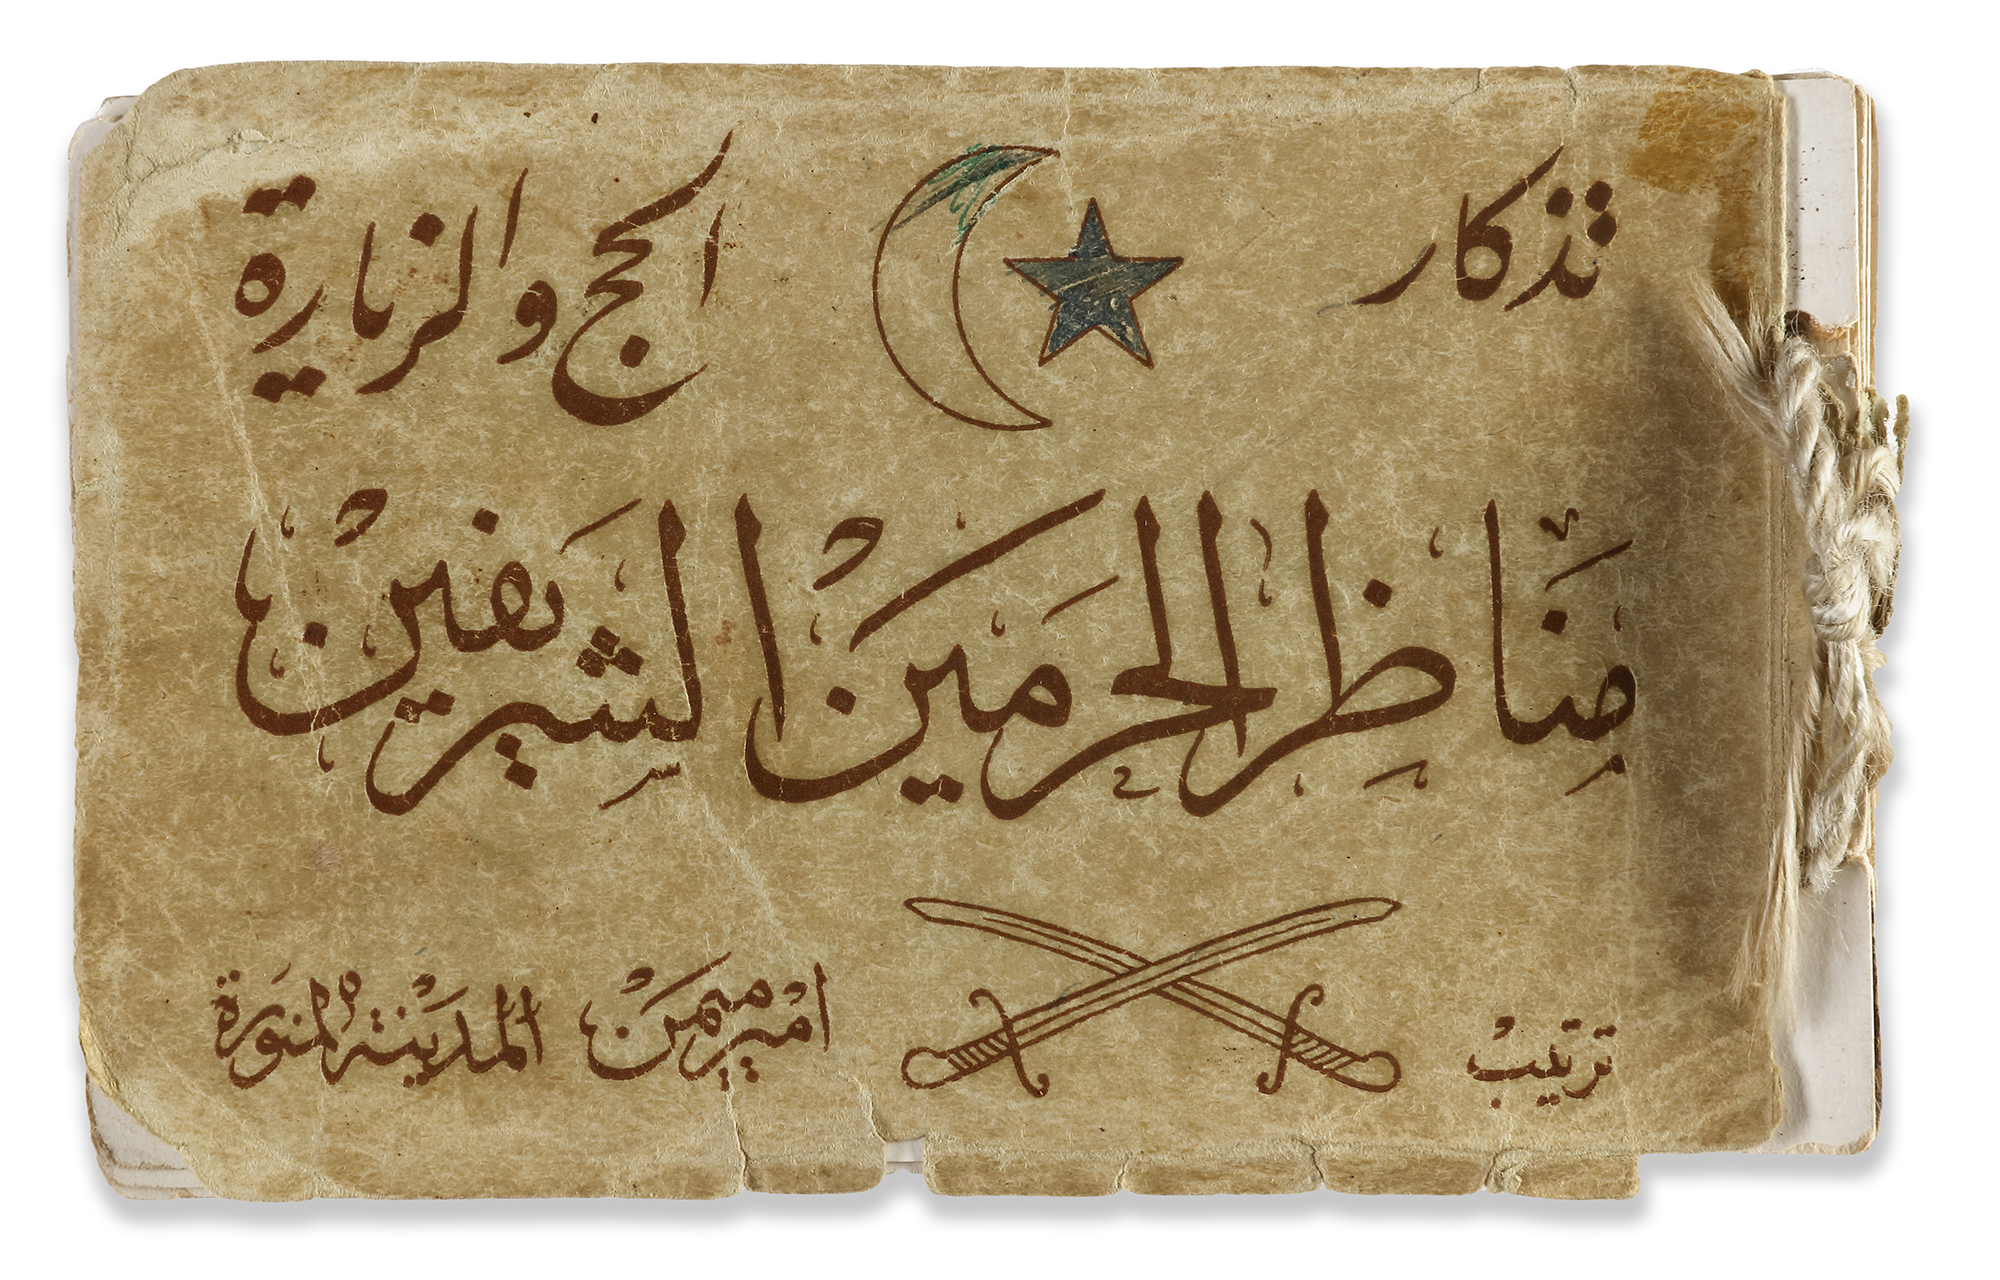 تذكار الحج والزيارة
مَنَاظِر الحرمين الشريفين
ترتيب امير ميمن المدينة المنورة